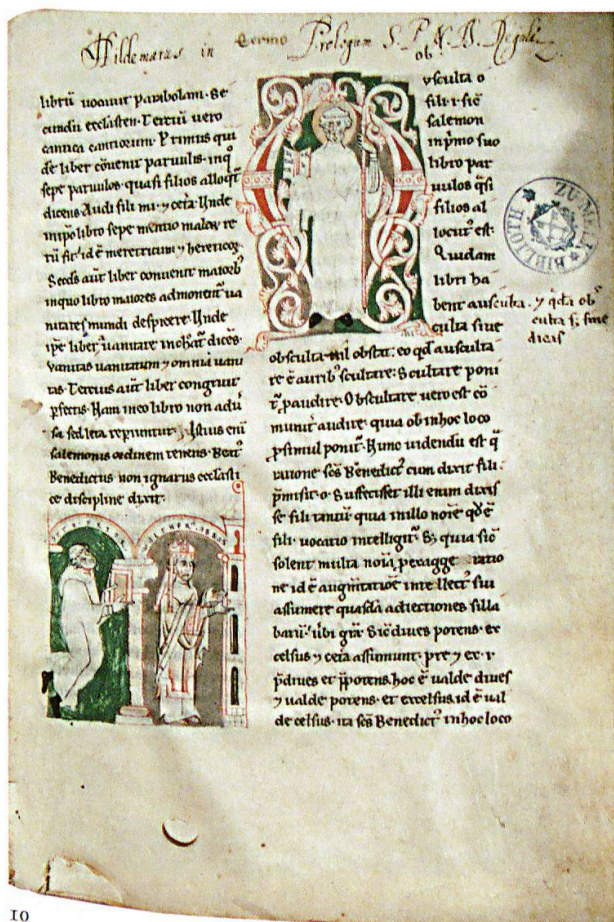 Hildemarus in Prologum S. P. N. B. Regulæ
librū uocauit parabolam. Se
cundū ecclasten. Tertiū uero
cantica canticorum. Primus qui
dē liber cōuenit paruulis. inq
sepe paruulos quasi filios alloqt
dicens. Audi fili mi. ⁊ cetā. Unde
libro sepe mentio
rū fit. id ē meretricum ⁊ hereticoꝝ.
Scds aut liber conuenit
inquo libro maiores admonent ua
nitates mundi despicere. Unde
ipe liber uanitate dices.
uanitas uanitatum ⁊ omnia uani
tas. Tercius aut liber congruit
pfectis. Nam in eo libro non
sed leta repiuntur. Istius eni
salemonis ordinem tenens. Beat
Benedictus non ignarus ecclasti
ce discipline dixit.
usculta o
fili. sic
salemon
inpmo suo
libro par
uulos qsi
filios al
locut est.
Quidam
libri ha
bent ausculta. ⁊ qda ob
culta siue
culta s; sine
dicis
obsculta nil obstat. eo qd ausculta
re ē aurib scultare. Scultare poni
t p audire. Obscultare uero est cō
munit audire. quia ob in hoc loco
p simul ponit. Nunc uidendū est q
ratione scs Benedict cum dixit fili.
pmisit. o. Suffecisset illi enim dixis
se fili tantū. quia in illo noīe qd ē
fili. uocatio intelligit. Sz quia sic
solent multa noīa
ne id ē augmtatiōe intellect sui
assumere quasdā adiectiones silla
barū. ubi grā. Sic diues potens. ex
celsus ⁊ cetā assumunt. pre ⁊ ex.
pdiues et ppotens. hoc ē ualde diues
⁊ ualde potens. et excelsus. id ē ual
de celsus. ita scs Benedict in hoc loco
BIBLIOTH ZU MELK
10